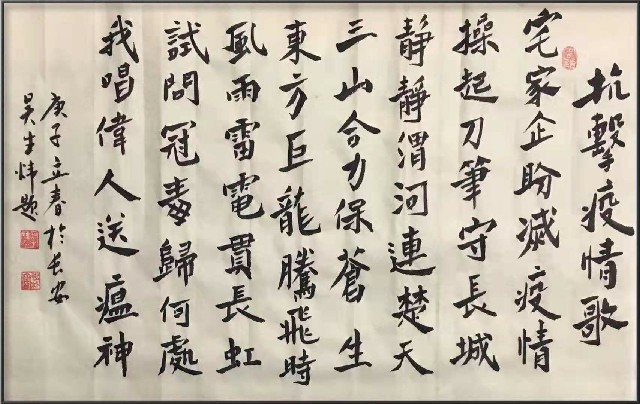 抗擊疫情歌
宅家企盼滅疫情
操起刀筆守長城
靜靜渭河連楚天
三山合力保蒼生
東方巨龍騰飛時
風雨雷電貫長虹
試問冠毒歸何處
我唱偉人送瘟神
庚子立春於長安
吳生煒題